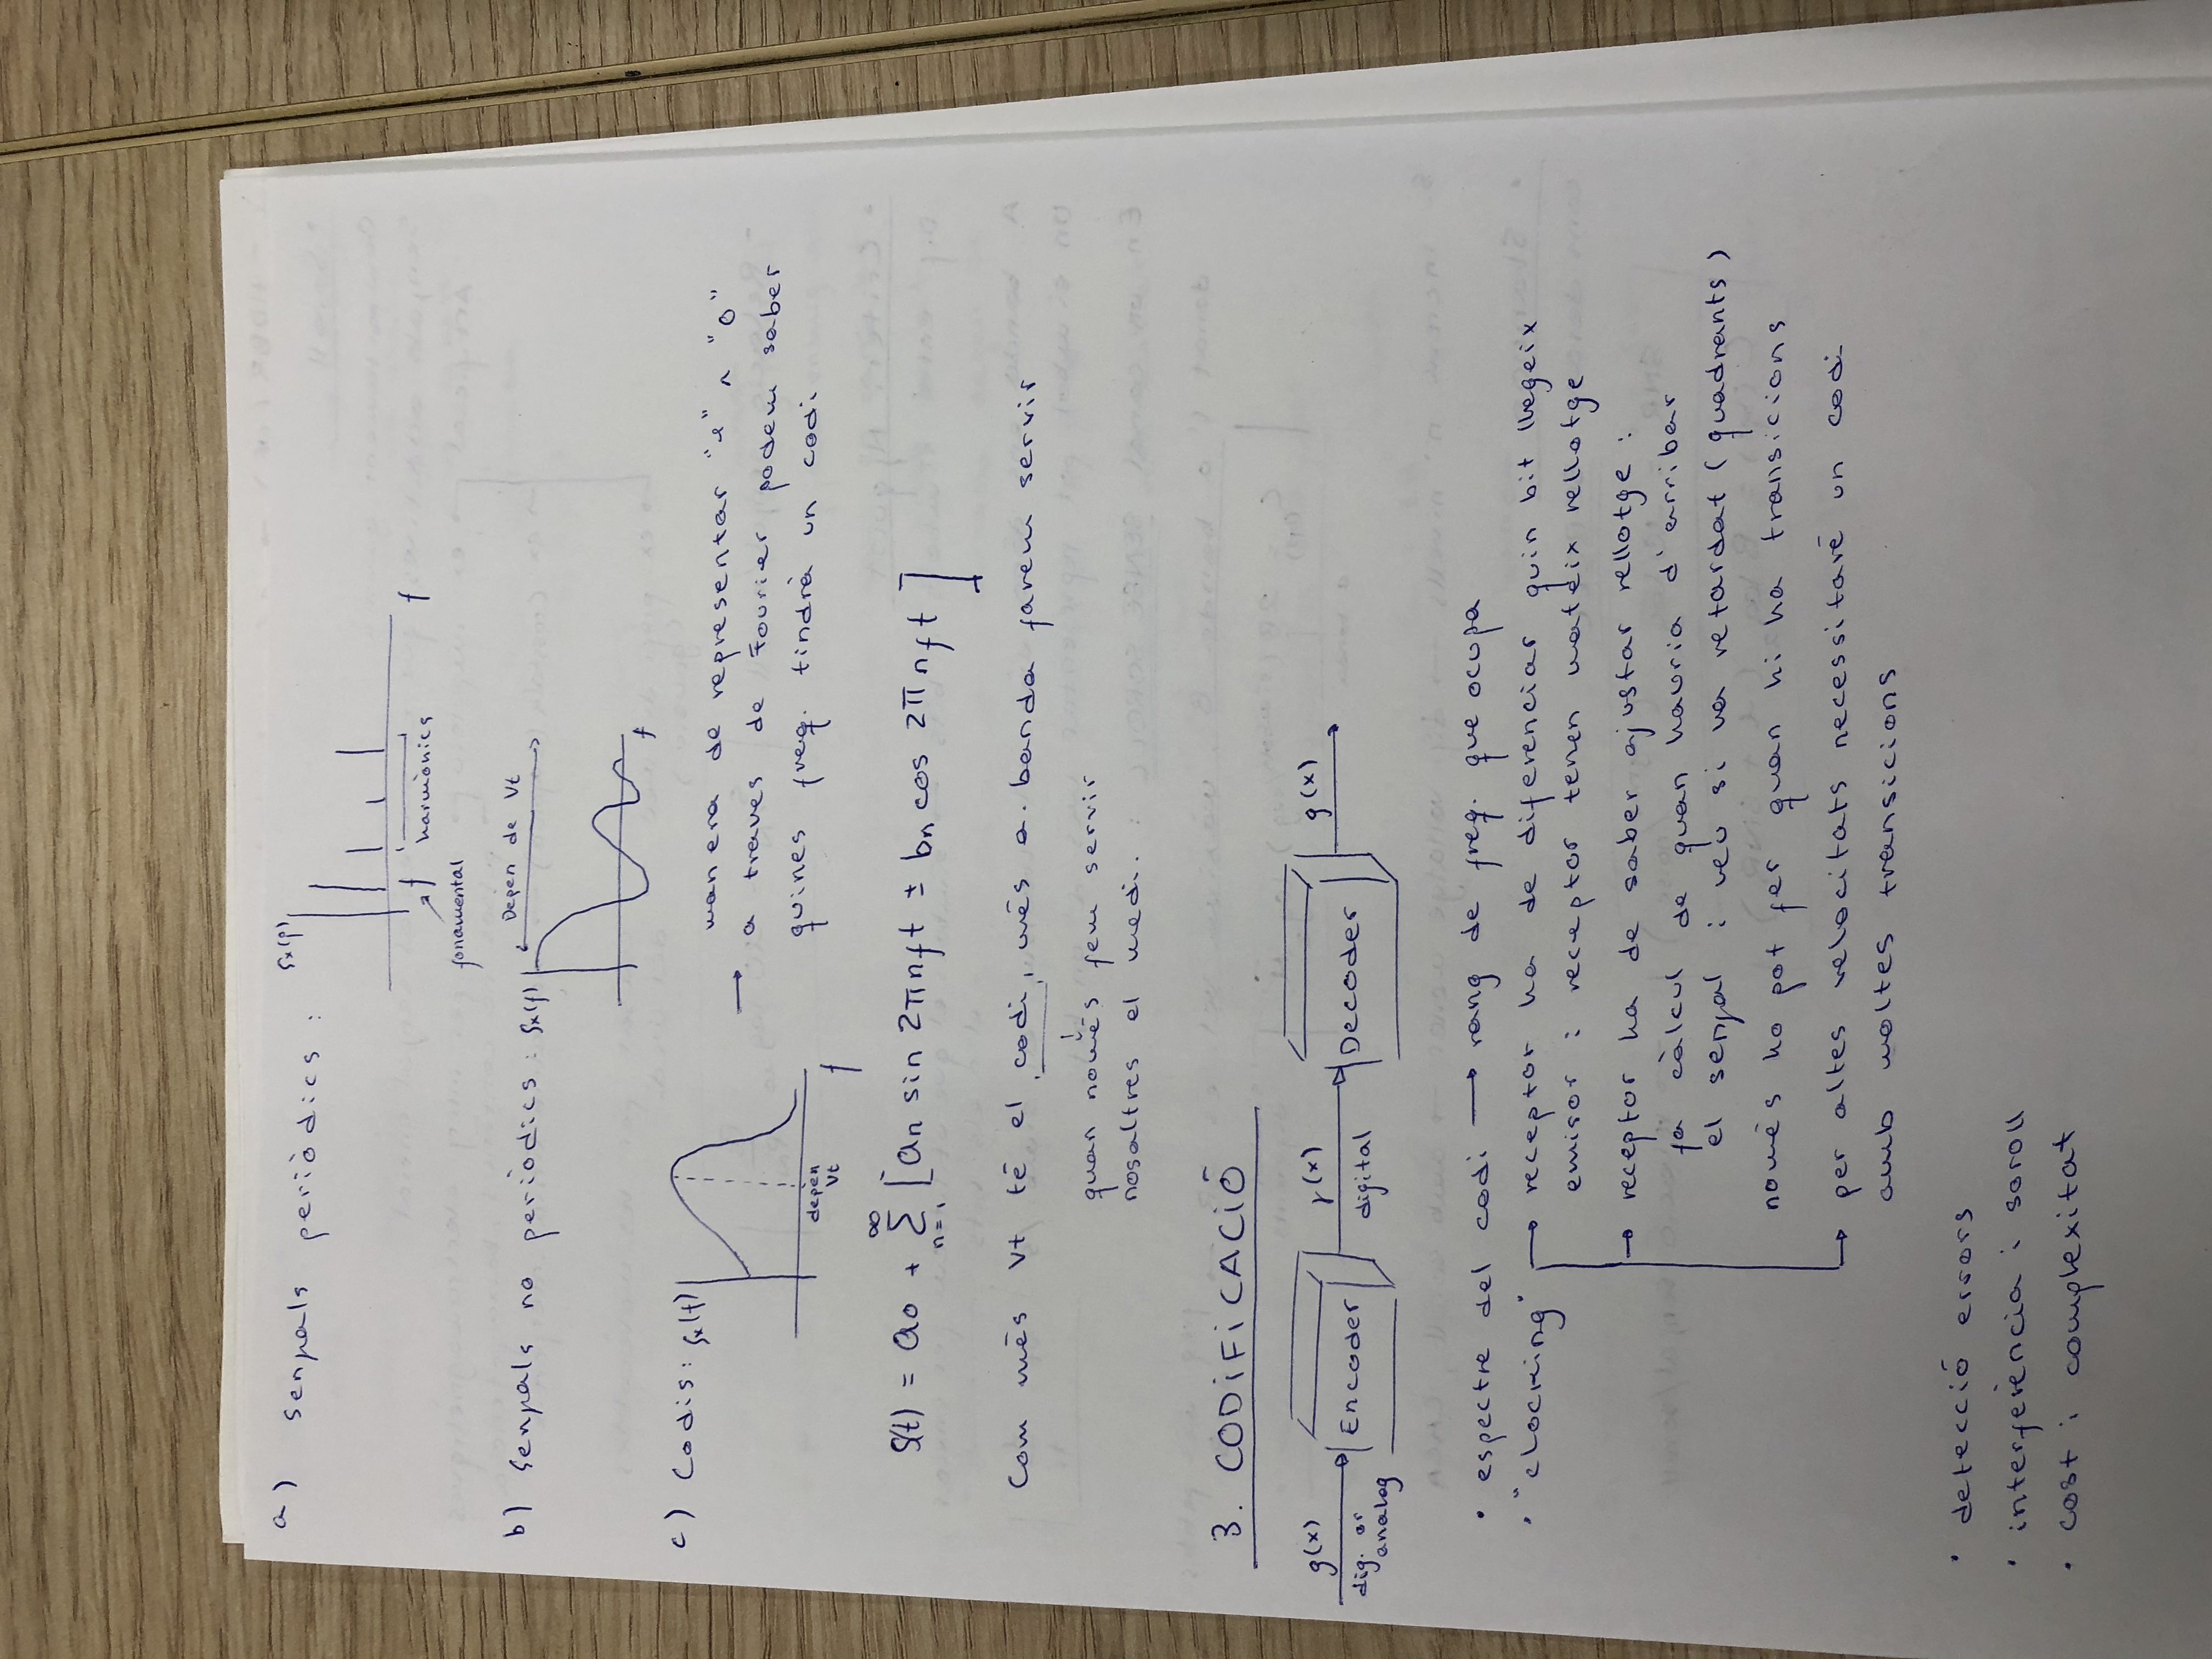 a) senyals periòdics :
Sx(f)
f
fonamental
harmònics
f
b) senyals no periòdics : Sx(f)
Depen de Vt
f
c) Codis: Sx(f)
depèn
Vt
f
→ manera de representar "1" ∧ "0"
a traves de Fourier, podem saber
quines freq. tindrà un codi
S(t) = a0 + ∑ n=1 ∞ [an sin 2πnft ± bn cos 2πnft]
Com més Vt té el codi, més a. banda farem servir
quan només fem servir
nosaltres el medi.
3. CODIFICACIÓ
g(x)
dig. or
analog
Encoder
x(x)
digital
Decoder
g(x)
• espectre del codi → rang de freq. que ocupa
• "clocking" → receptor ha de diferenciar quin bit llegeix
emisor i receptor tenen mateix rellotge
→ receptor ha de saber ajustar rellotge :
fa càlcul de quan hauria d'arribar
el senyal i veu si va retardat (quadrants)
només ho pot fer quan hi ha transicions
→ per altes velocitats necessitaré un codi
amb moltes transicions
• detecció errors
• interferència i soroll
• cost i complexitat